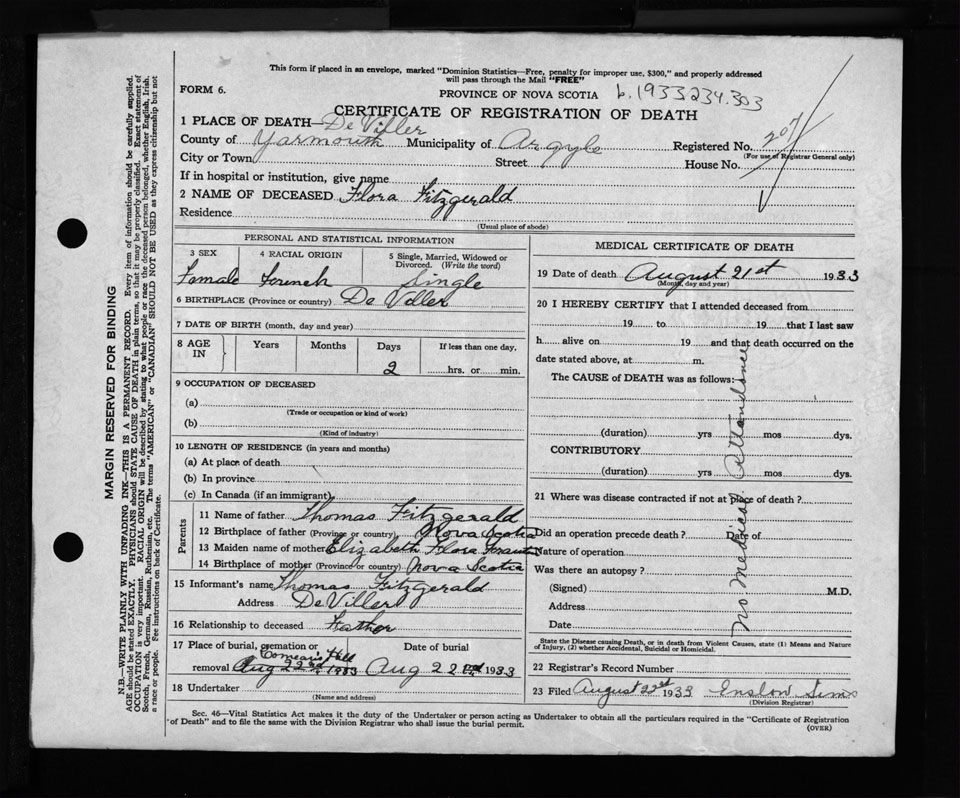 This form if placed in an envelope, marked "Dominion Statistics—Free, penalty for improper use, $300," and properly addressed
will pass through the Mail "FREE"
FORM 6.
PROVINCE OF NOVA SCOTIA b.1933 234.303
CERTIFICATE OF REGISTRATION OF DEATH
1 PLACE OF DEATH—De Viller
County of Yarmouth Municipality of Argyle Registered No. 207
(For use of Registrar General only)
City or Town Street House No.
If in hospital or institution, give name
2 NAME OF DECEASED Flora Fitzgerald
Residence
(Usual place of abode)
PERSONAL AND STATISTICAL INFORMATION
3 SEX 4 RACIAL ORIGIN 5 Single, Married, Widowed or
Divorced. (Write the word)
Female French Single
6 BIRTHPLACE (Province or country) De Viller
7 DATE OF BIRTH (month, day and year)
8 AGE IN Years Months Days If less than one day,
2 hrs. or min.
9 OCCUPATION OF DECEASED
(a)
(Trade or occupation or kind of work)
(b)
(Kind of industry)
10 LENGTH OF RESIDENCE (in years and months)
(a) At place of death
(b) In province
(c) In Canada (if an immigrant)
Parents
11 Name of father Thomas Fitzgerald
12 Birthplace of father (Province or country) Nova Scotia
13 Maiden name of mother Elizabeth Flora
14 Birthplace of mother (Province or country) Nova Scotia
15 Informant's name Thomas Fitzgerald
Address De Viller
16 Relationship to deceased Father
17 Place of burial, cremation or Date of burial
Comeau's Hill
removal Aug 22nd 1933 Aug 22nd 1933
18 Undertaker
(Name and address)
MEDICAL CERTIFICATE OF DEATH
19 Date of death August 21st 1933
(Month, day and year)
20 I HEREBY CERTIFY that I attended deceased from
19 to 19 that I last saw
h alive on 19 and that death occurred on the
date stated above, at m.
The CAUSE of DEATH was as follows:
(duration) yrs mos dys.
CONTRIBUTORY
(duration) yrs mos dys.
No Medical Attendance
21 Where was disease contracted if not at place of death?
Did an operation precede death? Date of
Nature of operation
Was there an autopsy?
(Signed) M.D.
Address
Date
State the Disease causing Death, or in death from Violent Causes, state (1) Means and Nature
of Injury, (2) whether Accidental, Suicidal or Homicidal.
22 Registrar's Record Number
23 Filed August 22nd 1933 Enslow Sims
(Division Registrar)
Sec. 46—Vital Statistics Act makes it the duty of the Undertaker or person acting as Undertaker to obtain all the particulars required in the "Certificate of Registration
of Death" and to file the same with the Division Registrar who shall issue the burial permit.
(OVER)
MARGIN RESERVED FOR BINDING
N.B.—WRITE PLAINLY WITH UNFADING INK—THIS IS A PERMANENT RECORD. Every item of information should be carefully supplied.
AGE should be stated EXACTLY. PHYSICIANS should STATE CAUSE OF DEATH in plain terms, so that it may be properly classified. Exact statement of
OCCUPATION is very important. RACIAL ORIGIN will be described by stating to what people or race the deceased person belonged, whether English, Irish,
Scotch, French, German, Russian, Ruthenian, etc. The terms "AMERICAN" or "CANADIAN" SHOULD NOT BE USED as they express citizenship but not
a race or people. See instructions on back of Certificate.